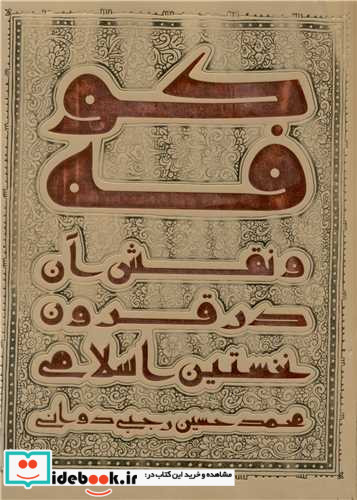 کو
فه
و نقش آن
در قرون
نخستین اسلامی
محمد حسین رجبی دوانی
مشاهده و خرید این کتاب در:
iiketab.com